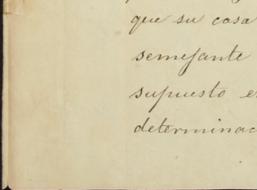 que su casa
semejante
supuesto e
determinac